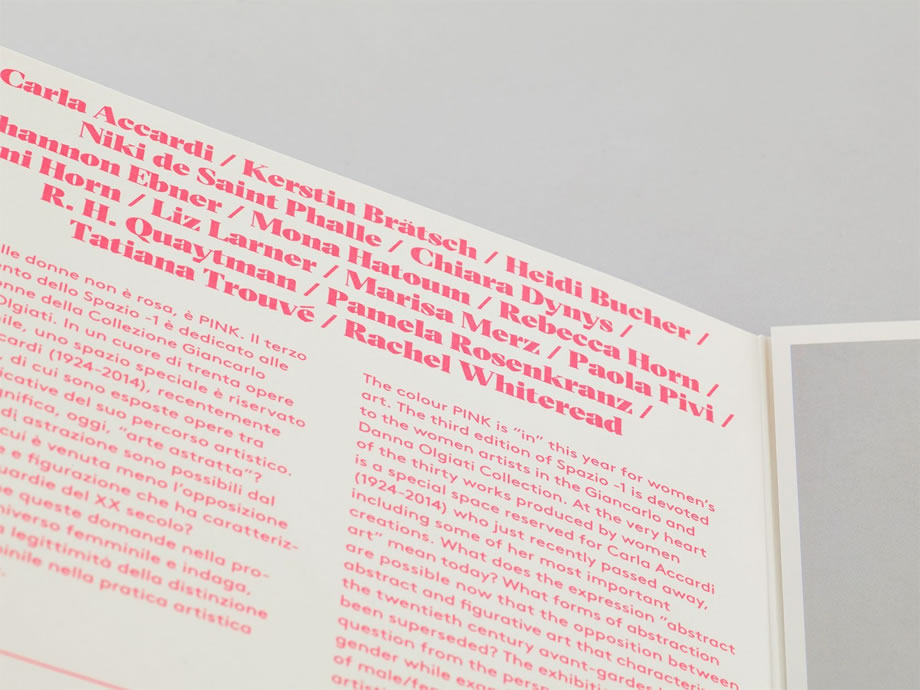 Carla Accardi / Kerstin Brätsch / Heidi Bucher /
Niki de Saint Phalle / Chiara Dynys /
hannon Ebner / Mona Hatoum / Rebecca Horn /
ni Horn / Liz Larner / Marisa Merz / Paola Pivi /
R. H. Quaytman / Pamela Rosenkranz /
Tatiana Trouvé / Rachel Whiteread
lle donne non è rosa, è PINK. Il terzo
nto dello Spazio -1 è dedicato alle
nne della Collezione Giancarlo
Olgiati. In un cuore di trenta opere
ile, uno spazio speciale è riservato
cardi (1924-2014), recentemente
, di cui sono esposte opere tra
icative del suo percorso artistico.
gnifica, oggi, “arte astratta”?
di astrazione sono possibili dal
cui è venuta meno l’opposizione
e e figurazione che ha caratteriz-
uardie del XX secolo?
e queste domande nella pro-
niverso femminile e indaga,
legittimità della distinzione
minile nella pratica artistica
The colour PINK is “in” this year for women’s
art. The third edition of Spazio -1 is devoted
to the women artists in the Giancarlo and
Danna Olgiati Collection. At the very heart
of the thirty works produced by women
is a special space reserved for Carla Accardi
(1924-2014) who just recently passed away,
including some of her most important
creations. What does the expression “abstract
art” mean today? What forms of abstraction
are possible now that the opposition between
abstract and figurative art that characteri
the twentieth century avant-gardes
been superseded? The exhibition
question from the persp
gender while exp
of male/fe
artisti